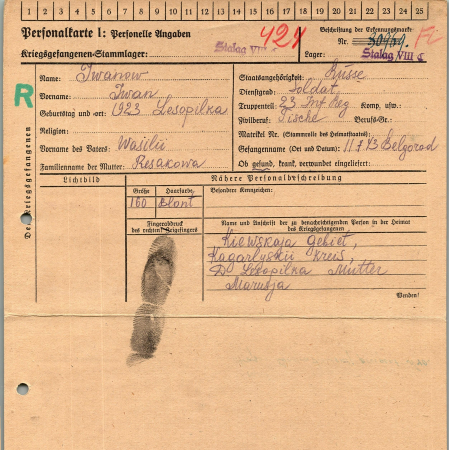 1 2 3 4 5 6 7 8 9 10 11 12 13 14 15 16 17 18 19 20 21 22 23 24 25
Personalkarte I: Personelle Angaben
Kriegsgefangenen-Stammlager: Stalag VIII 42
Beschriftung der Erkennungsmarke:
Nr.
Lager: Stalag VIII C
R
Des Kriegsgefangenen
Name: Iwanow
Vorname: Iwan
Geburtstag und -ort: 1923 Lesopilka
Religion:
Vorname des Vaters: Wasilii
Familienname der Mutter: Resakowa
Staatsangehörigkeit: Russe
Dienstgrad: Soldat
Truppenteil: 23 Inf Reg Komp. usw.:
Zivilberuf: Tischl Berufs-Gr.:
Matrikel Nr. (Stammrolle des Heimatstaates):
Gefangennahme (Ort und Datum): 11 7 43 Belgorad
Ob gesund, krank, verwundet eingeliefert:
Lichtbild
Nähere Personalbeschreibung
Größe Haarfarbe
160 Blont
Besondere Kennzeichen:
Fingerabdruck
des rechten Zeigefingers
Name und Anschrift der zu benachrichtigenden Person in der Heimat
des Kriegsgefangenen
Kiewskaja Gebiet,
Kagarlyskii Kreis,
D Lesopilka Mutter
Marusja
Wenden!